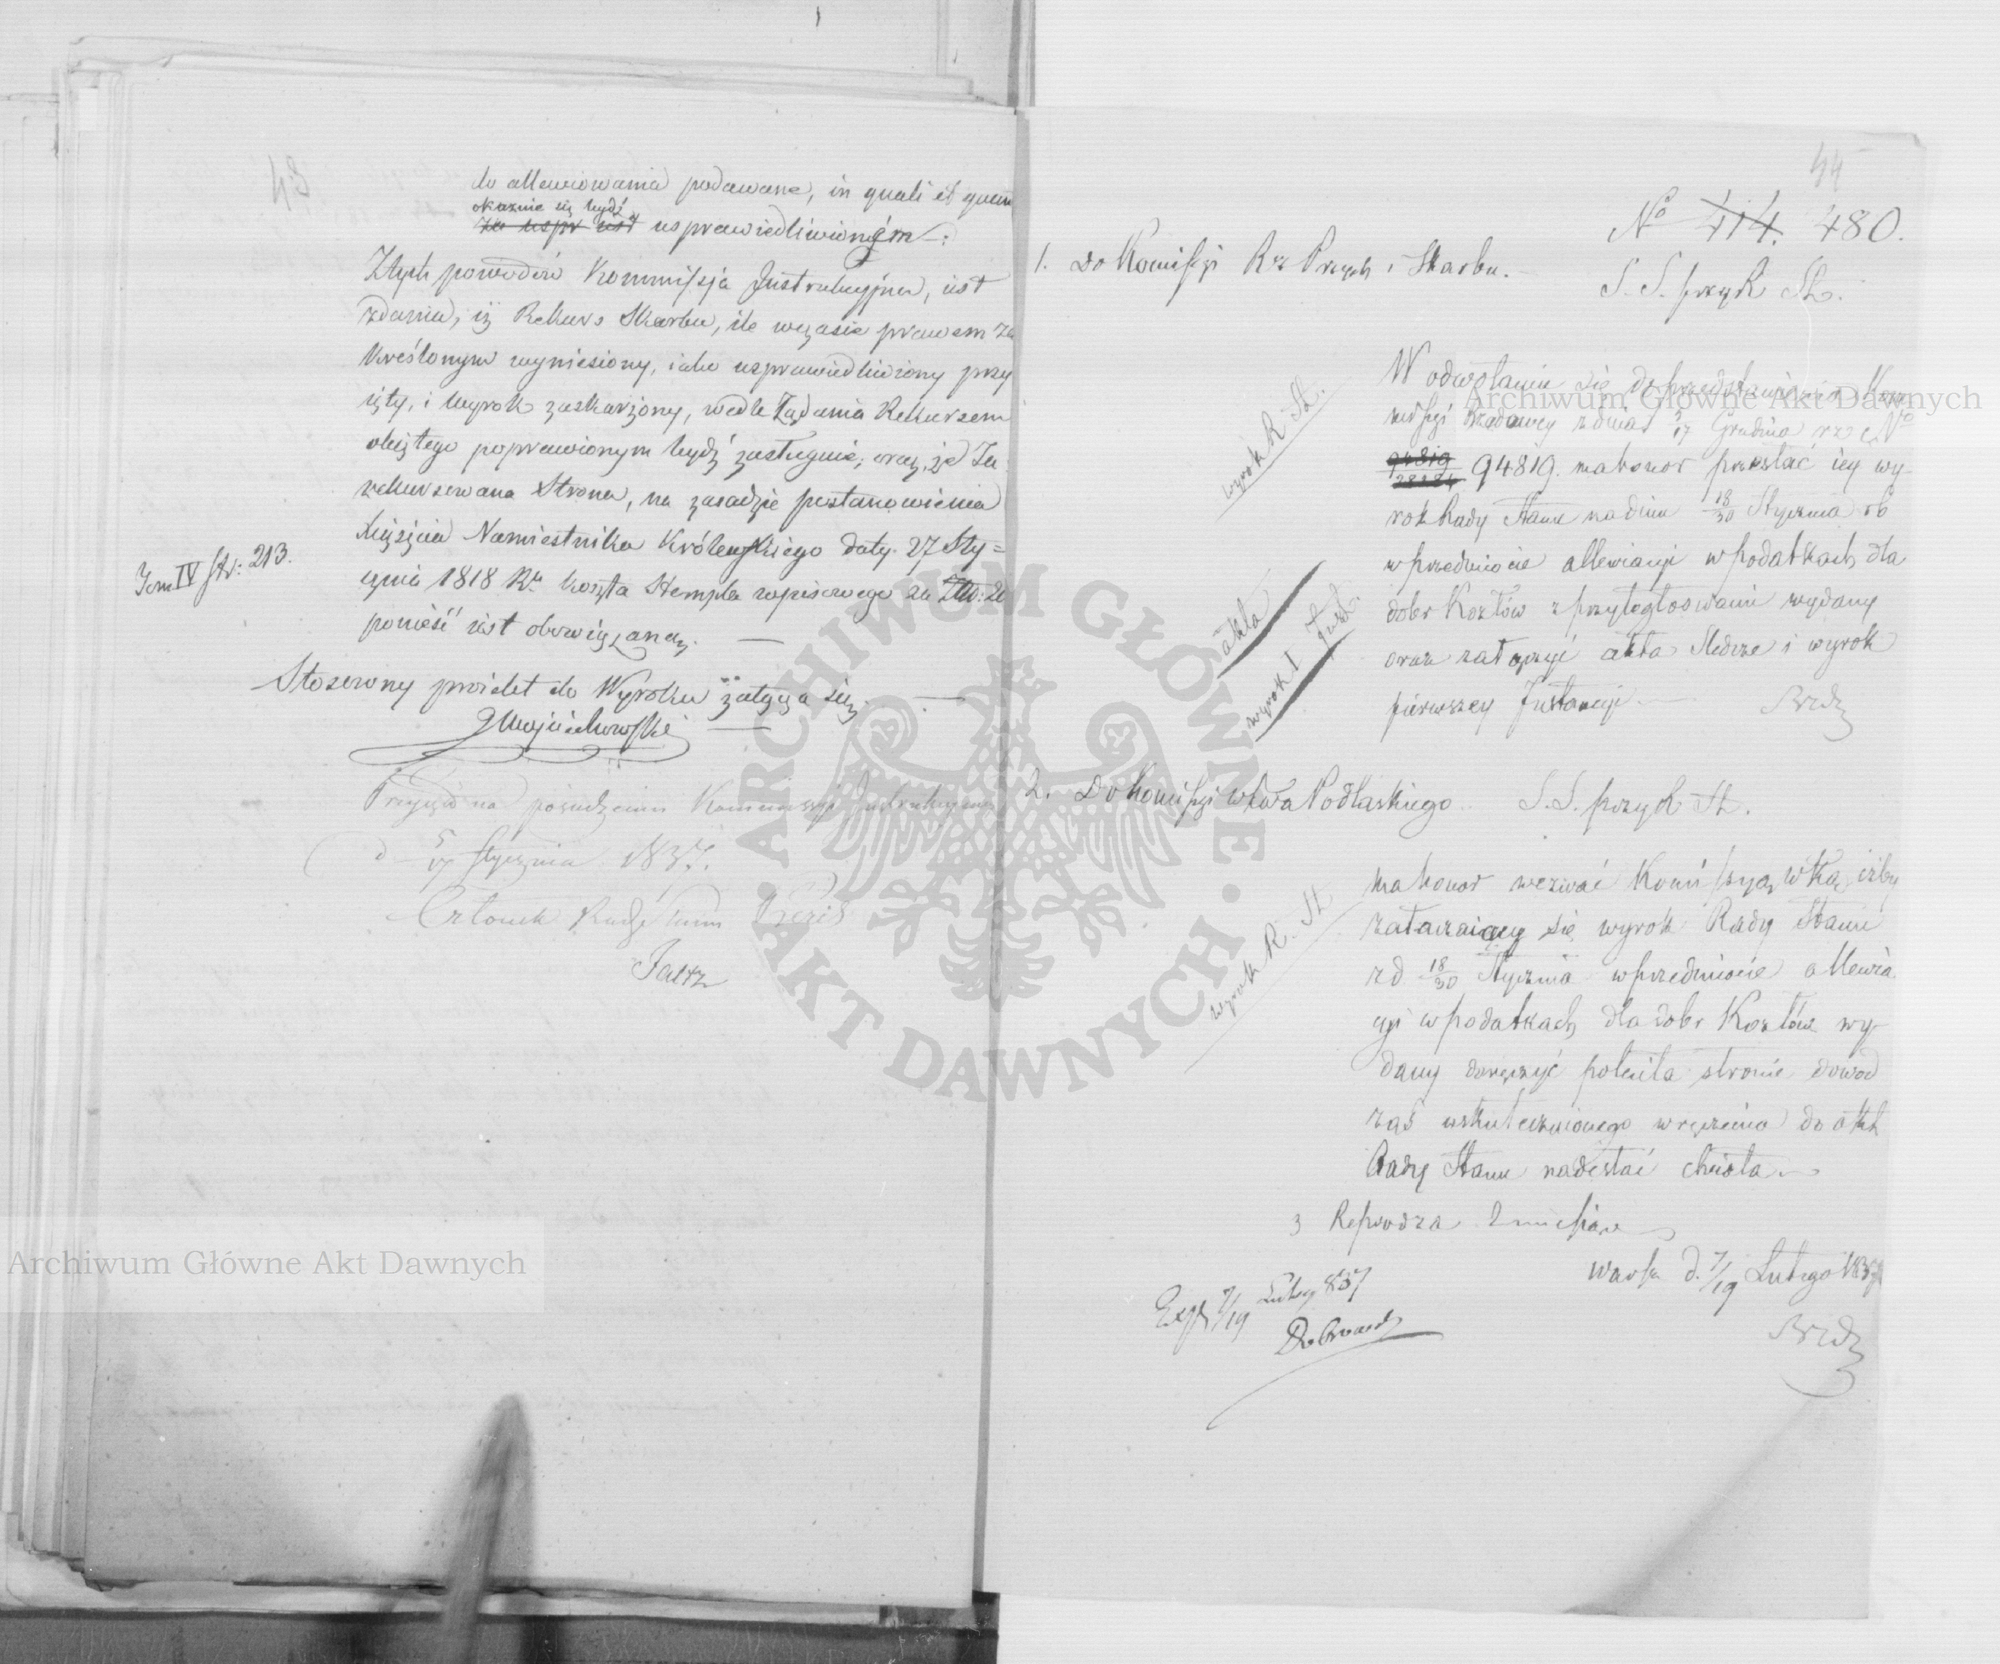 43
do allewiowania podawane, in quali et quan
okaznie się bydź
za uspr iest usprawiedliwionym.
Z tych powodów Kommissja Instrukcyjna, iest
zdania, iż Rekurs Skarbu, ile w czasie prawem za
kreślonym wyniesiony, iako usprawiedliwiony przy
ięty, i Wyrok zaskarżony, wedle Żądania Rekursem
obiętego poprawionym bydź zasługuie; oraz, że Za
rekursowana Strona, na zasadzie postanowienia
Xięzięcia Namiestnika Królewskiego daty. 27 Sty=
Tom IV str: 213.
cznia 1818 R. koszta Stempla wpisowego za
ponieść iest obowiązaną.
Stosowny proiekt do Wyroku załącza się.
JWojciechowski
Przyięto na posiedzeniu Kommissyi Instrukcyiney
d 5/17 Stycznia 1837.
Członek Rady Stanu
44
No 414. 480.
1. Do Komissyi Rz Przych i Skarbu.
S. S. przy R St.
wyrok R. St.
W odwołaniu się do przedstawienia Kom
missyi Rządowey z dnia 5/17 Grudnia r z No
94819
28184 94819. ma honor przesłać iey wy-
rok Rady Stanu na dniu 18/30 Stycznia rb
w przedmiocie allewiacyi w podatkach dla
dobr Kozłów z przyległościami wydany
akta
wyrok I Inst.
oraz załączyć akta Śledcze i wyrok
pierwszey Instancyi
2. Do Komissyi Wdztwa Podlaskiego S. S. przy R St.
wyrok R. St
ma honor wezwać Komissyą Wką, iżby
załączaiący się wyrok Rady Stanu
z d 18/30 Stycznia w przedmiocie allewia
cyi w podatkach dla dobr Kozłów wy-
dany doręczyć poleciła stronie dowod
zaś uskutecznionego wręczenia do akt
Rady Stanu nadesłać chciała
3 Reprodza 2 miesiące
Warsz. d. 7/19 Lutego 1837
Exp 7/19 Lutego 837
Archiwum Główne Akt Dawnych
Archiwum Główne Akt Dawnych
ARCHIWUM GŁÓWNE · AKT DAWNYCH ·